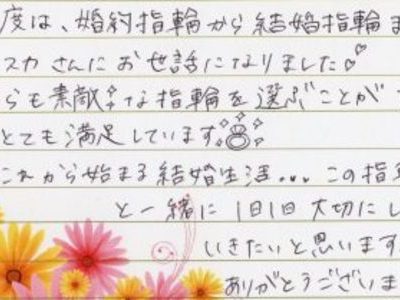 度は、婚約指輪から結婚指輪ま
スカさんにお世話になりました
らも素敵な指輪を選ぶことが
とても満足しています
これから始まる結婚生活...この指
と一緒に1日1日大切にし
いきたいと思います
ありがとうございま